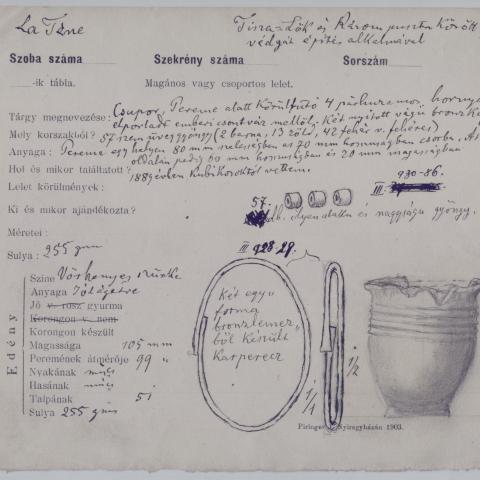 La Téne
Tisza-Lök és Rázom puszta között
védgát építés alkalmával
Szoba száma Szekrény száma Sorszám
-ik tábla. Magános vagy csoportos lelet.
Tárgy megnevezése: Csupor, Pereme alatt körülfutó 4 párhuzamos, hornyo
elporladt emberi csontváz mellől. Két nyitott végű bronzka
Mely korszakból? 57 szem üveggyöngy (2 barna, 13 zöld, 42 fehér v. fehéres)
Anyaga: Pereme egy helyen 80 mm szélességban és 20 mm hosszúságban csorba. A
oldalán pedig 60 mm hosszúságban és 20 mm magasságban
Hol és mikor találtatott? 1889 évben kubikosoktól vettem.
Lelet körülmények: 930-86.
III.
57.
Ki és mikor ajándékozta? db. ilyen alakú és nagyságú gyöngy.
Méretei:
Súlya: 255 gm
III 928-29.
Edény
Színe Vöröhenyes szürke
Anyaga Jól égetve
Jó v. rosz gyurma
Korongon v. nem
Korongon készült
Magassága 105 mm
Peremének átmérője 99 "
Nyakának nincs
Hasának nincs
Talpának 51
Sulya 255 gm
Két egy
forma
bronzlemez
ből készült
Karperecz
1/1
1/2
Piringer Nyiregyházán 1903.